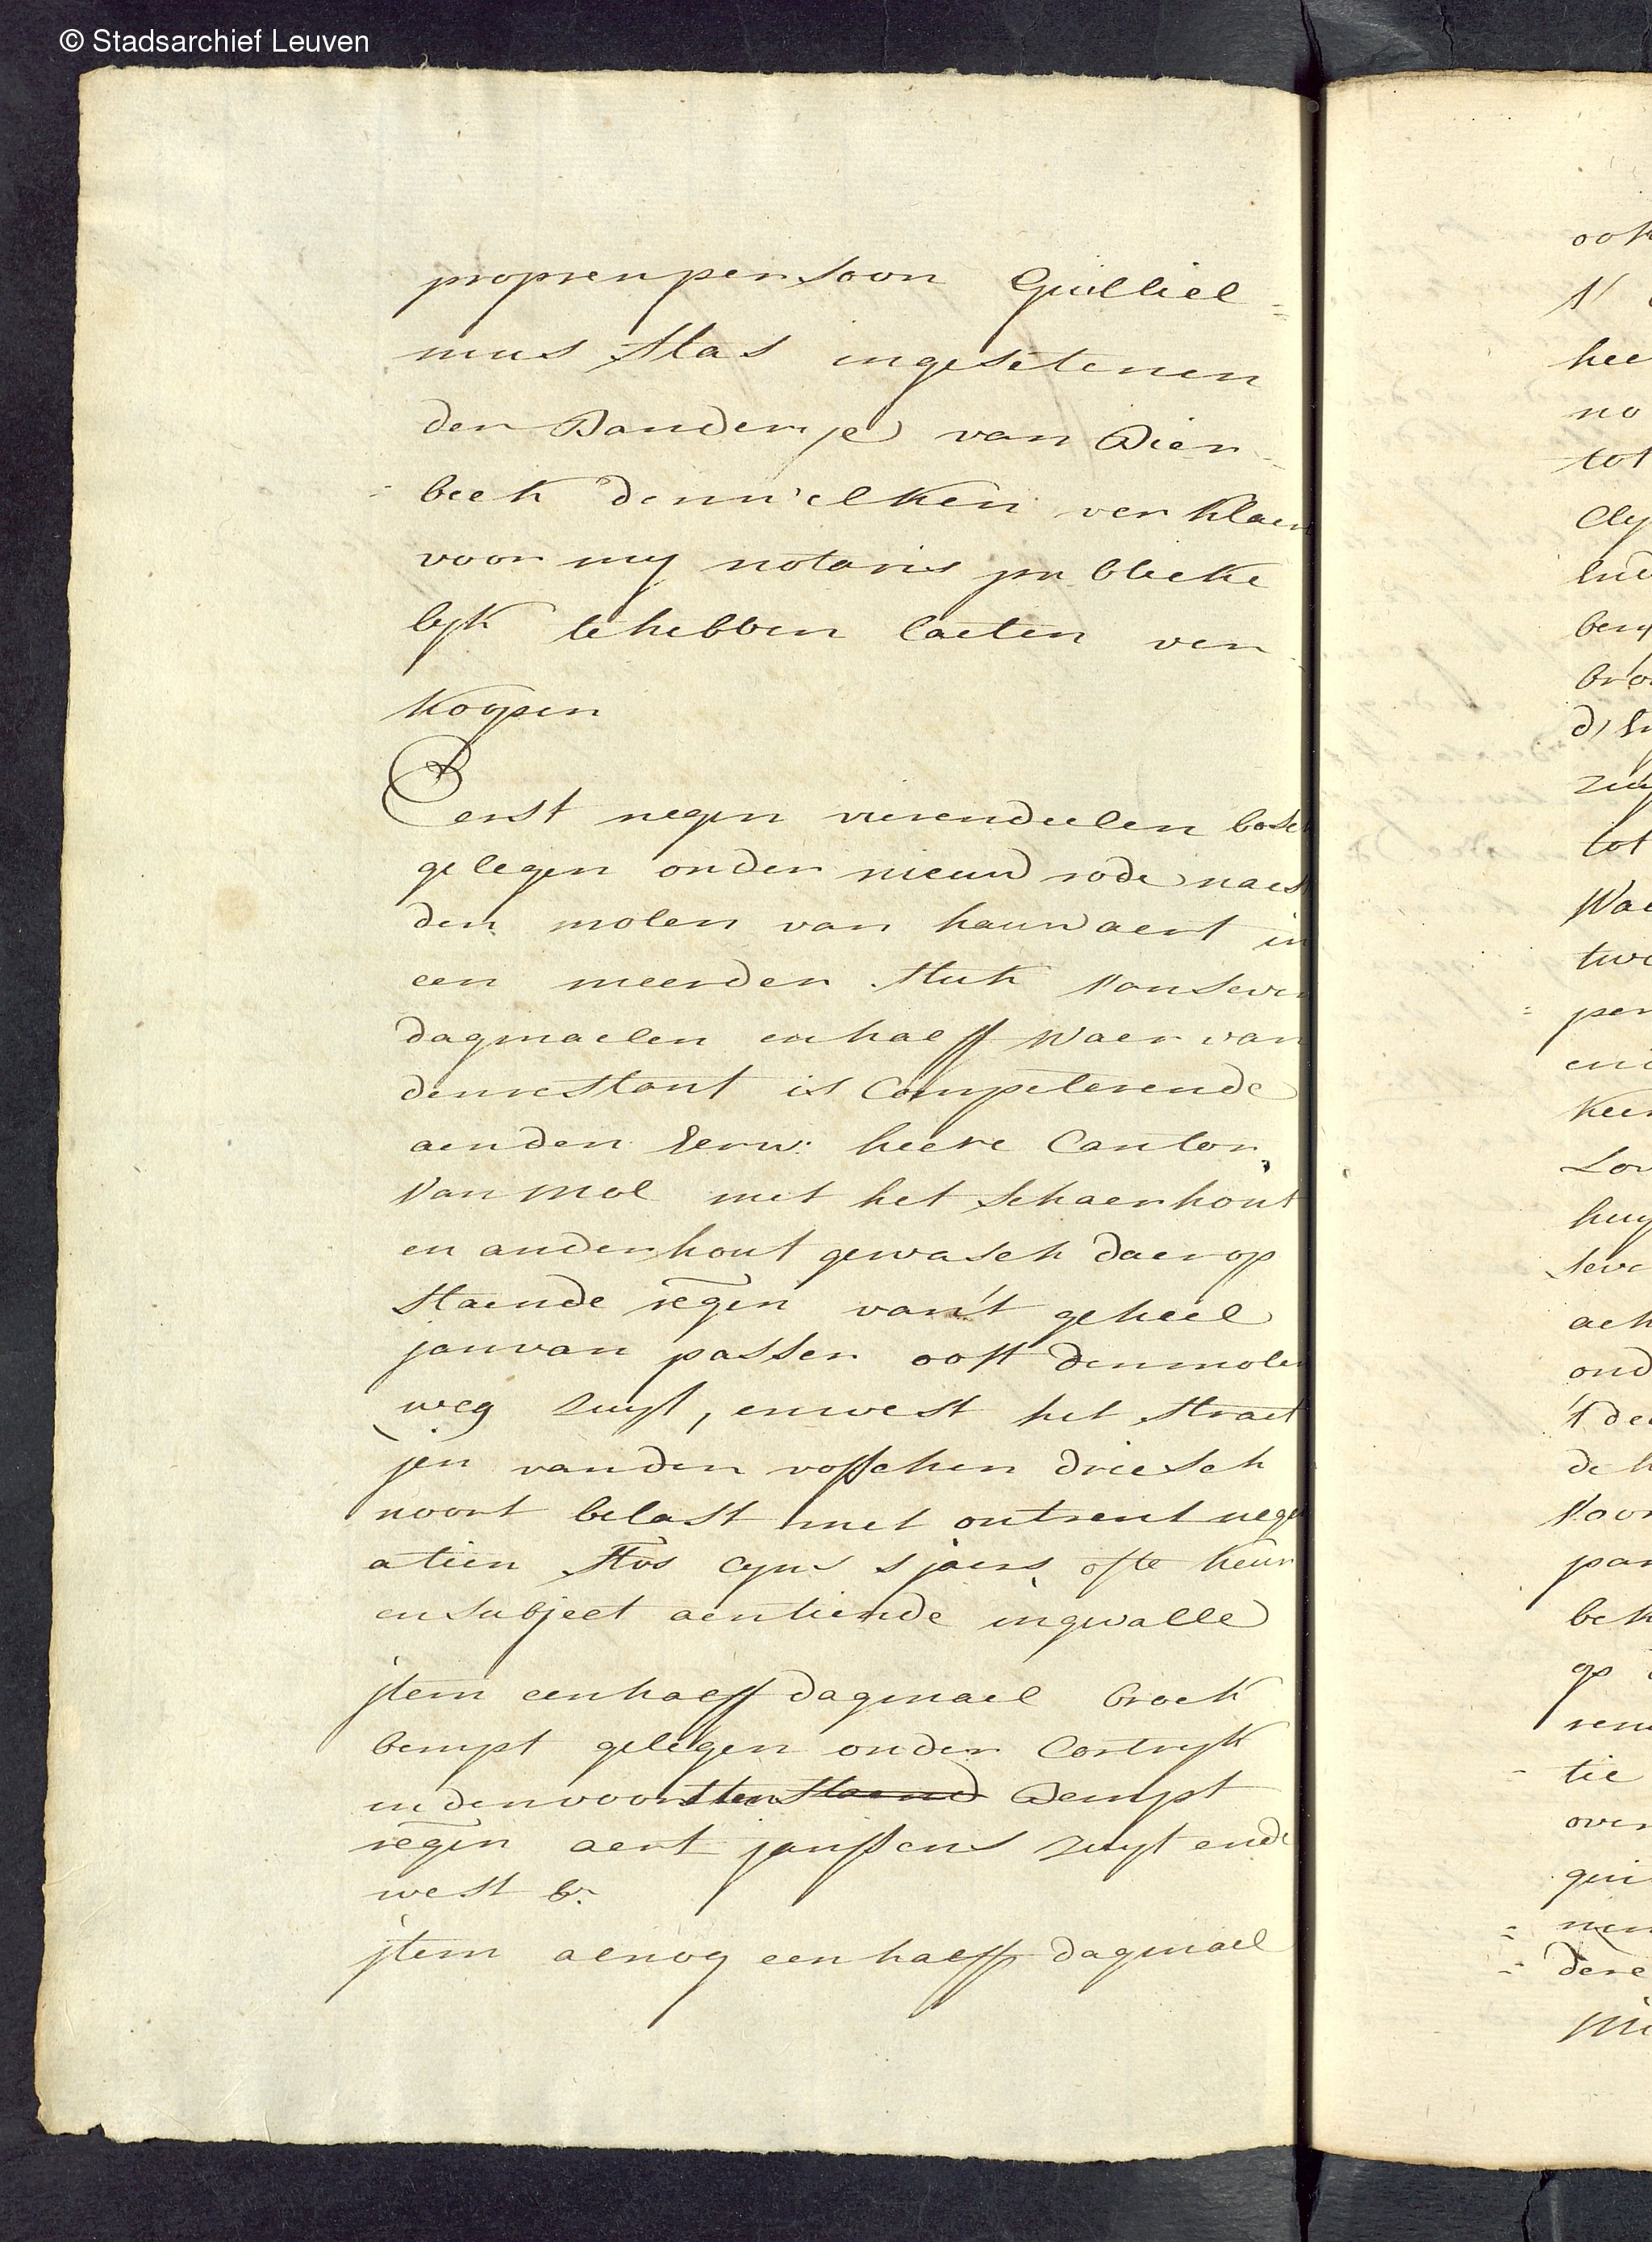 © Stadsarchief Leuven
propren persoon Guilliel=
mus Stas ingesetenen
der Banderije van Bier=
=beek denwelken verklaer
voor my notaris publieke
lyk te hebben laeten ver=
koopen
Eerst negen vierendeelen bosch
gelegen onder nieuwrode naest
den molen van hauwaert in
een meerder stuk van seven
dagmaelen en halff waer van
den restant is Competerende
aen den Eerw: heere Cantor
van mol met het schaerhout
en ander hout gewasch daer op
staende regen van't geheel
jan van passen oost den molen
weg zuyt, en west het straet
jen van den vosschen driesch
noort belast met ontrent negen
atien stvs cyns sjaers ofte keur
en subject aen tiende ingevalle
jtem een halff dagmael broek
bempt gelegen onder Cortryk
in den voorsten staend Bempt
regen aert janssens zuyt ende
west &.
jtem alnog een halff dagmael
ook
hee
no
tot
tot
Wae
twe
per
keer
Lov
huy
seve
ach
ond
't dee
de h
voor
par
bek
op
tie
over
nen
dere